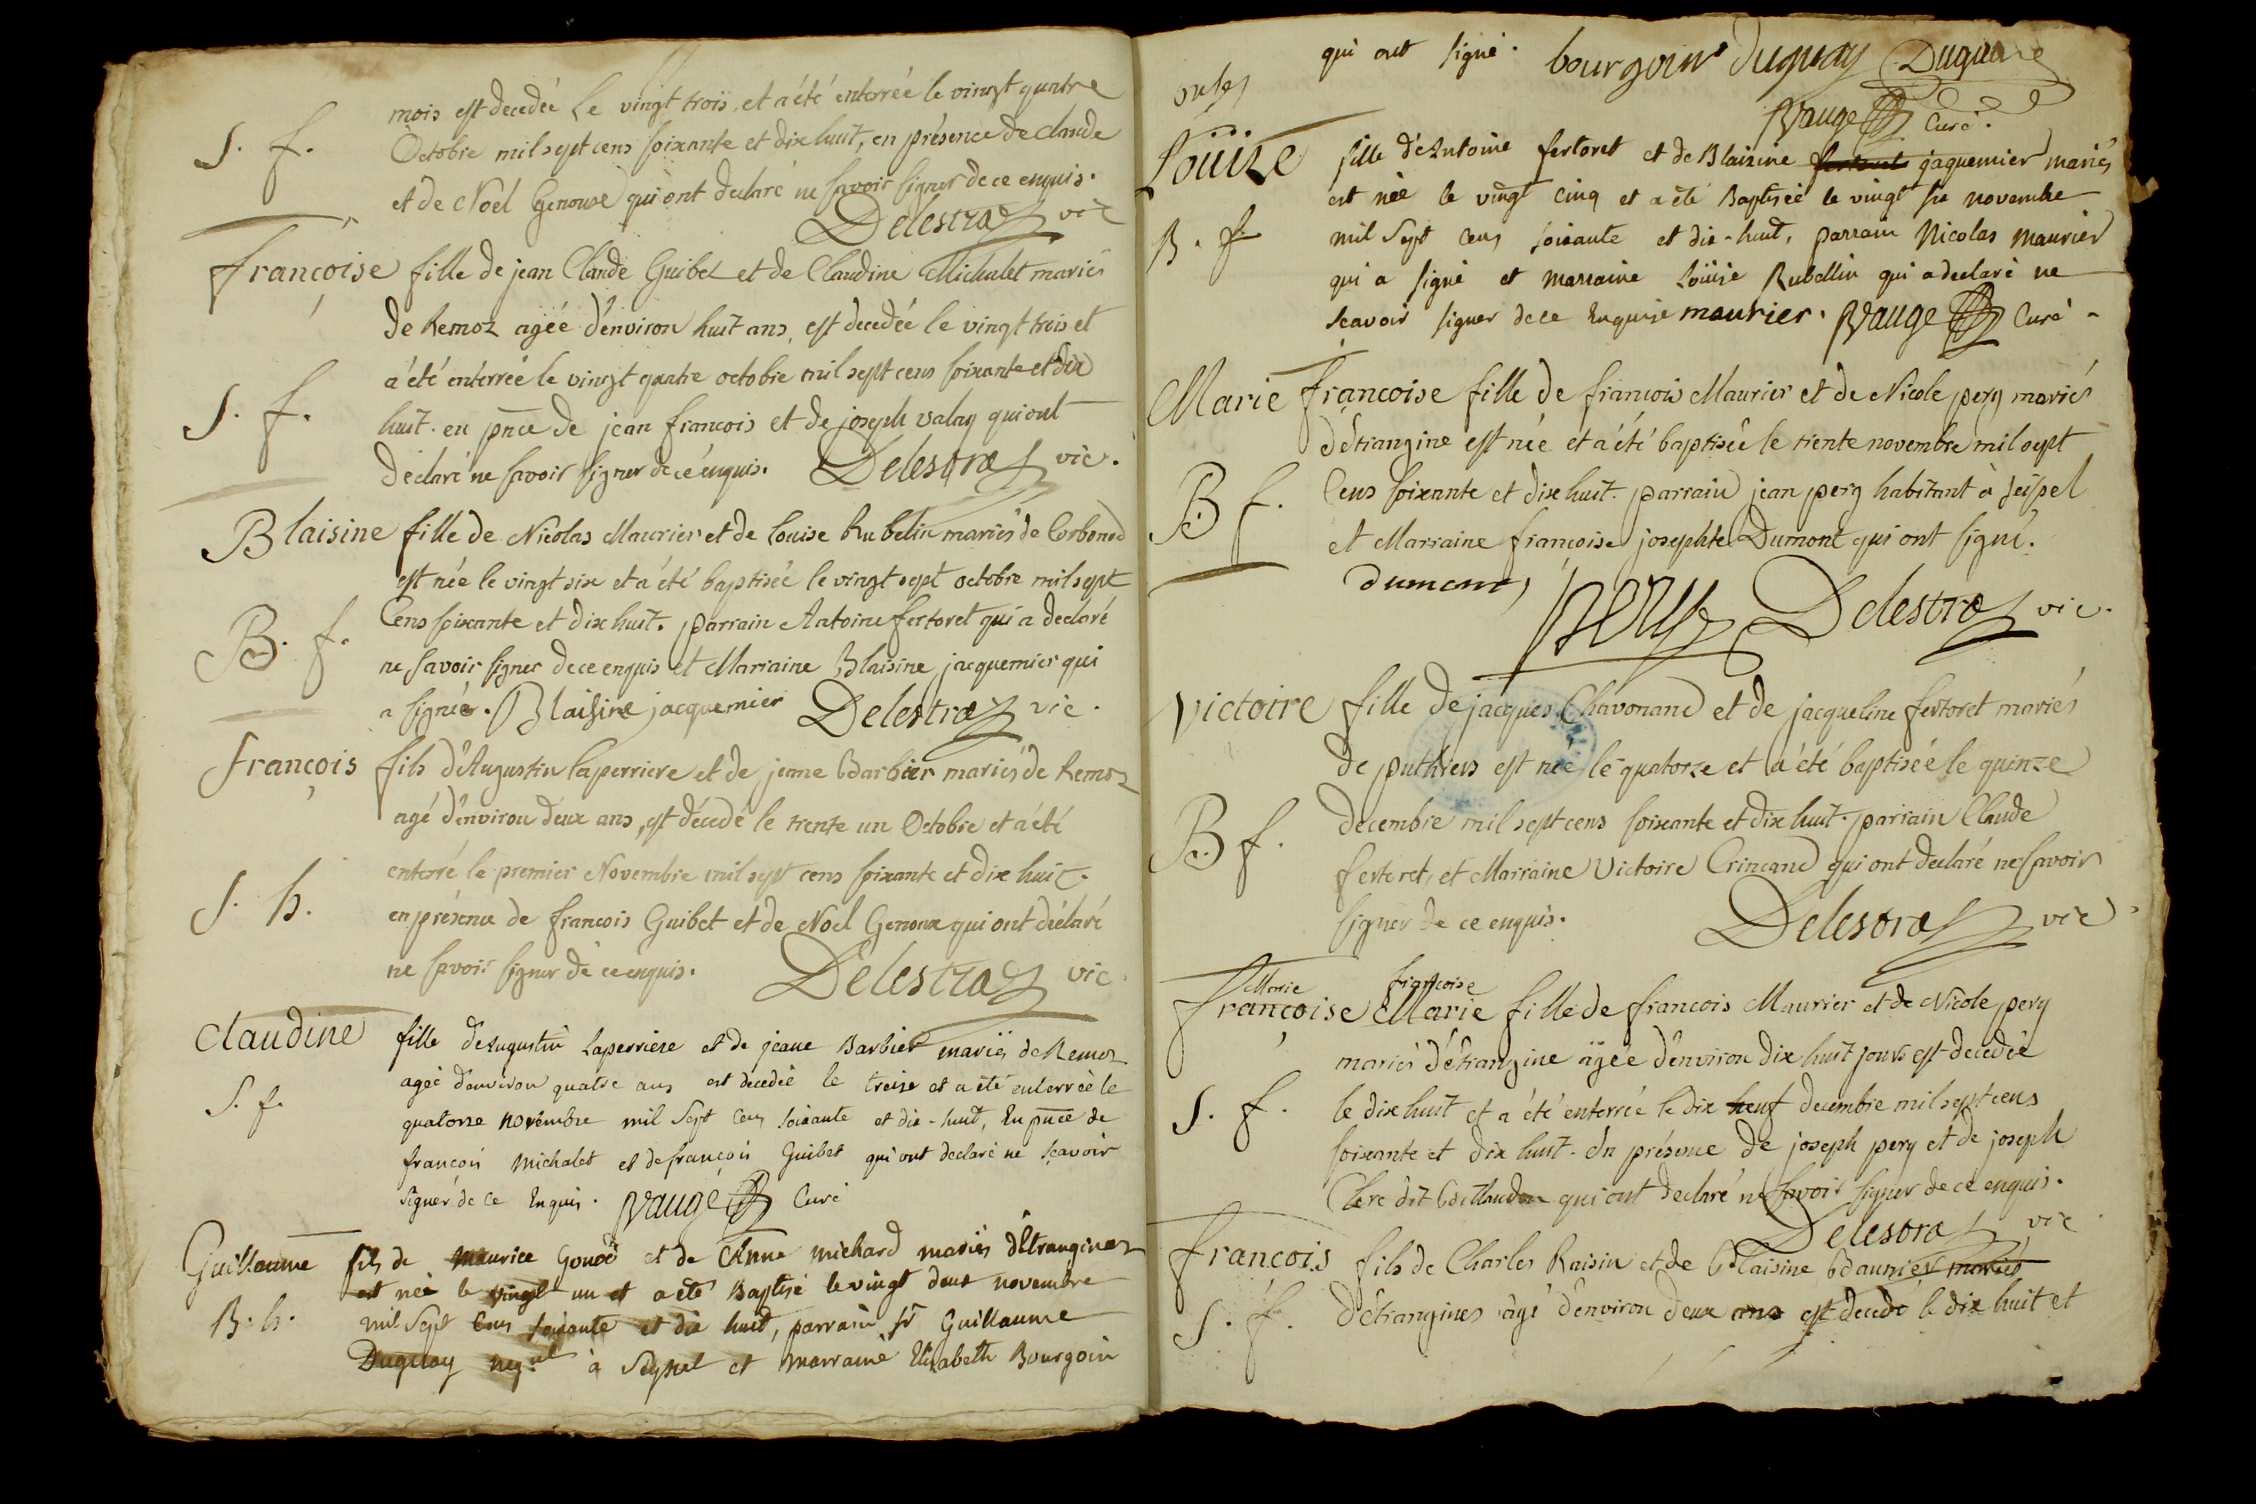 mois est decedée le vingt trois, et a été enterrée le vingt quatre
S. f. Octobre mil sept cens soixante et dix huit, en présence de claude
et de Noel Genoux qui ont declaré ne savoir signer de ce enquis.
Delestraz vic
françoise fille de jean Claude Guibet et de Claudine Michalet mariés
de Remoz agée d'environ huit ans, est decedée le vingt trois et
a été enterrée le vingt quatre octobre mil sept cens soixante et dix
S. f. huit. en pnce de jean francois et de joseph valay qui ont
declaré ne savoir signer de ce enquis. Delestraz vic.
Blaisine fille de Nicolas Maurier et de Louise Rubelin mariés de Corbonod
est née le vingt six et a été baptisée le vingt sept octobre mil sept
B. f. Cens soixante et dix huit. parrain Antoine fertoret qui a declaré
ne savoir signer de ce enquis et Marraine Blaisine jacquemier qui
a signée. Blaisine jacquemier Delestraz vic.
françois fils d'Augustin laperriere et de jeanne Barbier mariés de Remoz
agé d'environ deux ans, est décedé le trente un Octobre et a été
enterré le premier Novembre mil sept cens soixante et dix huit.
S. h. en présence de francois Guibet et de Noel Genoux qui ont déclaré
ne savoir signer de ce enquis. Delestraz vic.
Claudine fille d'augustin laperriere et de jeane Barbier mariés de Remoz
S. f. ageé d'environ quatre ans est decedeé le treize et a été enterreé le
quatorze novembre mil Sept Cens soixante et dix-huit, En pnce de
francois Michalet et de françois Guibet qui ont declaré ne sçavoir
signer de ce Enquis. Vauge Curé
Guillaume fils de Maurice Gonod et de Anne Michard mariés d'Etranginez
est neé le vingt un et a été Baptisé le vingt deux novembre
B. h. mil Sept Cens soixante et dix huit, parrain sr Guillaume
Duguay negnt à Seyssel et marraine Elizabeth Bourgoin
qui ont signé. bourgoin duguay Duguay
Vauge Curé.
Loüize fille d'Antoine fertoret et de Blaizine jaquemier mariés
est neé le vingt cinq et a été Baptiseé le vingt six novembre
B. f. mil Sept Cens soixante et dix-huit, parrain Nicolas Maurier
qui a signé et marraine Loüise Rubellin qui a declaré ne
scavoir signer de ce Enquise maurier. Vauge Curé
Marie françoise fille de francois Maurier et de Nicole pery mariés
d'étrangine est née et a été baptisée le trente novembre mil sept
B. f. Cens soixante et dix huit. parrain jean pery habitant à seissel
et Marraine françoise josephte Dumont qui ont signé.
dumont pery Delestraz vic.
Victoire fille de jacques Chavonand et de jacqueline fertoret mariés
de puthiers est née le quatorze et a été baptisée le quinze
B. f. decembre mil sept cens soixante et dix huit. parrain Claude
fertoret, et Marraine Victoire Crincand qui ont declaré ne savoir
signer de ce enquis. Delestraz vic
Marie françoise
françoise Marie fille de francois Maurier et de Nicole pery
mariés d'étrangine agée d'environ dix huit jours est decedée
S. f. le dix huit et a été enterrée le dix neuf decembre mil sept cens
soixante et dix huit. En présence de joseph pery et de joseph
Clerc dit qui ont declaré ne savoir signer de ce enquis.
Delestraz vic
francois fils de Charles Raisin et de Blaisine Baunier mariés
S. f. d'étrangines agé d'environ deux ans est decedé le dix huit et